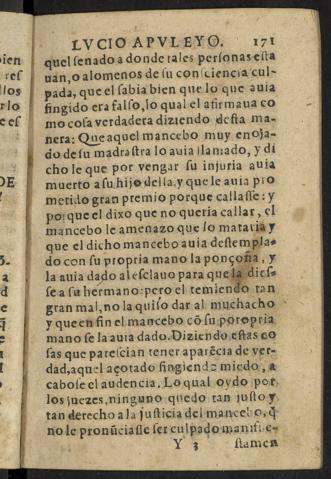 LVCIO APVLEYO. 171
quel senado a donde tales personas esta
uan, o alomenos de su consciencia cul-
pada, que el sabia bien que lo que auia
fingido era falso, lo qual el afirmaua co
mo cosa verdadera diziendo desta ma-
nera: Que aquel mancebo muy enoja-
do de su madrastra lo auia llamado, y di
cho le que por vengar su injuria auia
muerto a su hijo della, y que le auia pro
metido gran premio porque callasse: y
porque el dixo que no queria callar, el
mancebo le amenazo que lo mataria y
que el dicho mancebo auia destempla-
do con su propria mano la ponçoña, y
la auia dado al esclauo para que la dies-
se a su hermano: pero el temiendo tan
gran mal, no la quiso dar al muchacho
y que en fin el mancebo cõ su poropria
mano se la auia dado. Diziendo estas co
sas que parescian tener aparẽcia de ver-
dad, aquel açotado fingiendo miedo, a
cabose el audencia. Lo qual oydo por
los juezes, ninguno quedo tan justo y
tan derecho a la justicia del mancebo, q̃
no le pronũciasse ser culpado manifie-
Y 3 stamen
bien
res
llos
rlo
e es
DE
3-
a
d
e
q̃
e